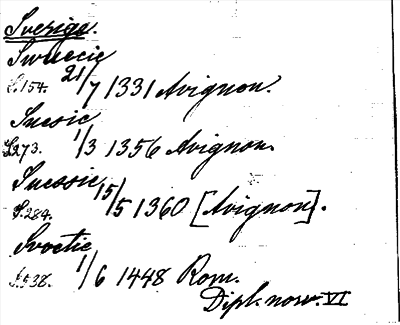 Sverige.
Swuecie
S.154. 21/7 1331 Avignon.
Suesie
S.273. 1/3 1356 Avignon.
Suessie
S.284. 15/5 1360 [Avignon].
Svoetie
S.538. 1/6 1448 Rom.
Dipl. norv. VI